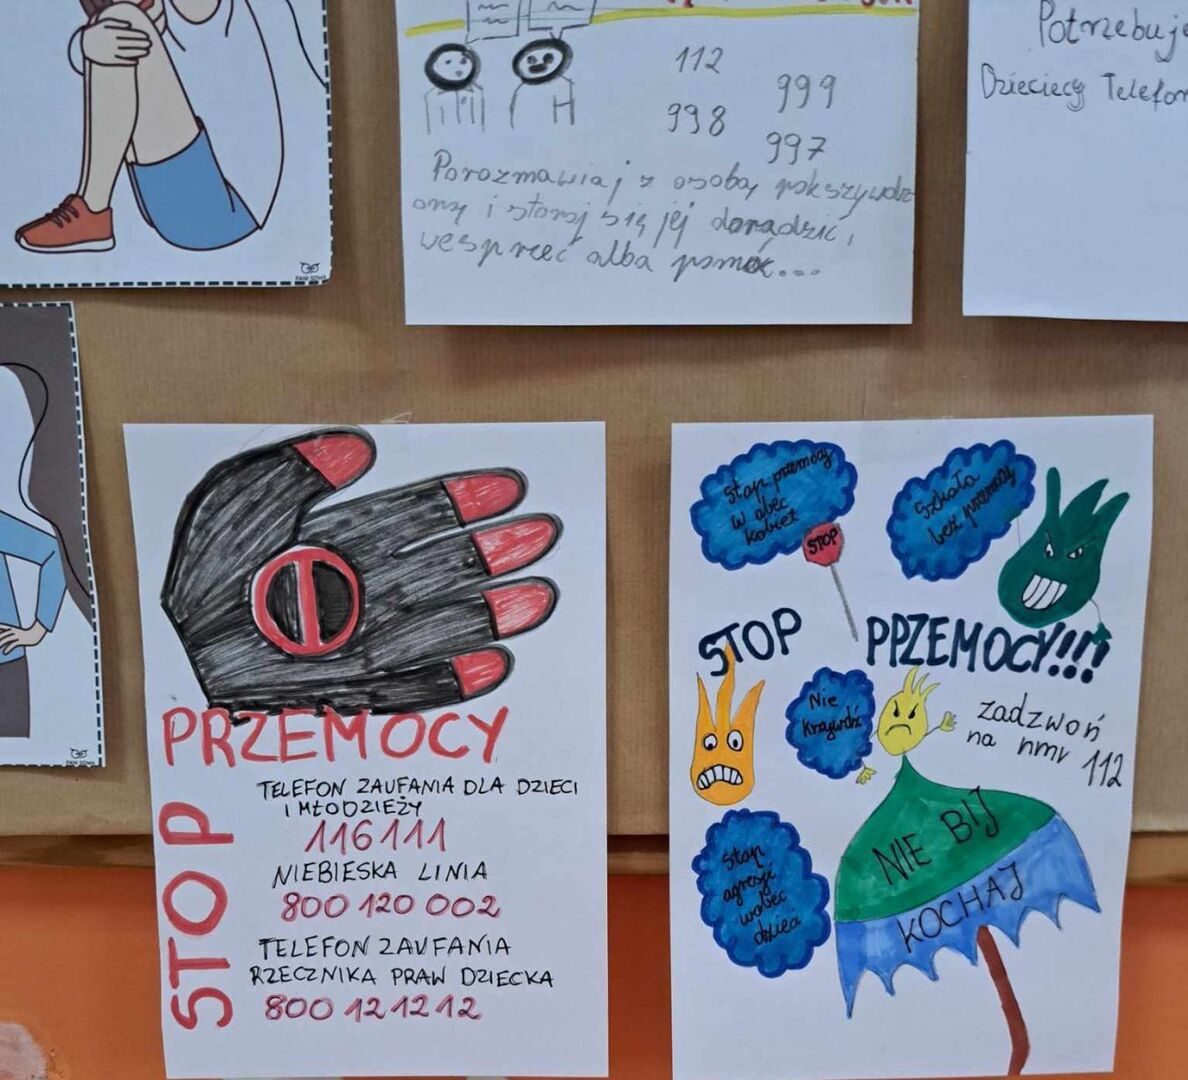 112
999
998
997
Porozmawiaj z osobą pokszywdz
oną i staraj się jej doradzić,
wesprzeć alba pomóc...
Potrzebuje
Dziecięcy Telefon
PANI SOWA
PANI SOWA
PRZEMOCY
STOP
TELEFON ZAUFANIA DLA DZIECI
I MŁODZIEŻY
116111
NIEBIESKA LINIA
800 120 002
TELEFON ZAUFANIA
RZECZNIKA PRAW DZIECKA
800 12 12 12
Stop przemocy
w obec
kobiet
STOP
Szkoła
bez przemocy
STOP PPZEMOCY!!!
Nie
krzywdź
zadzwoń
na nmr 112
Stop
agresji
wobec
dzieci
NIE BIJ
KOCHAJ